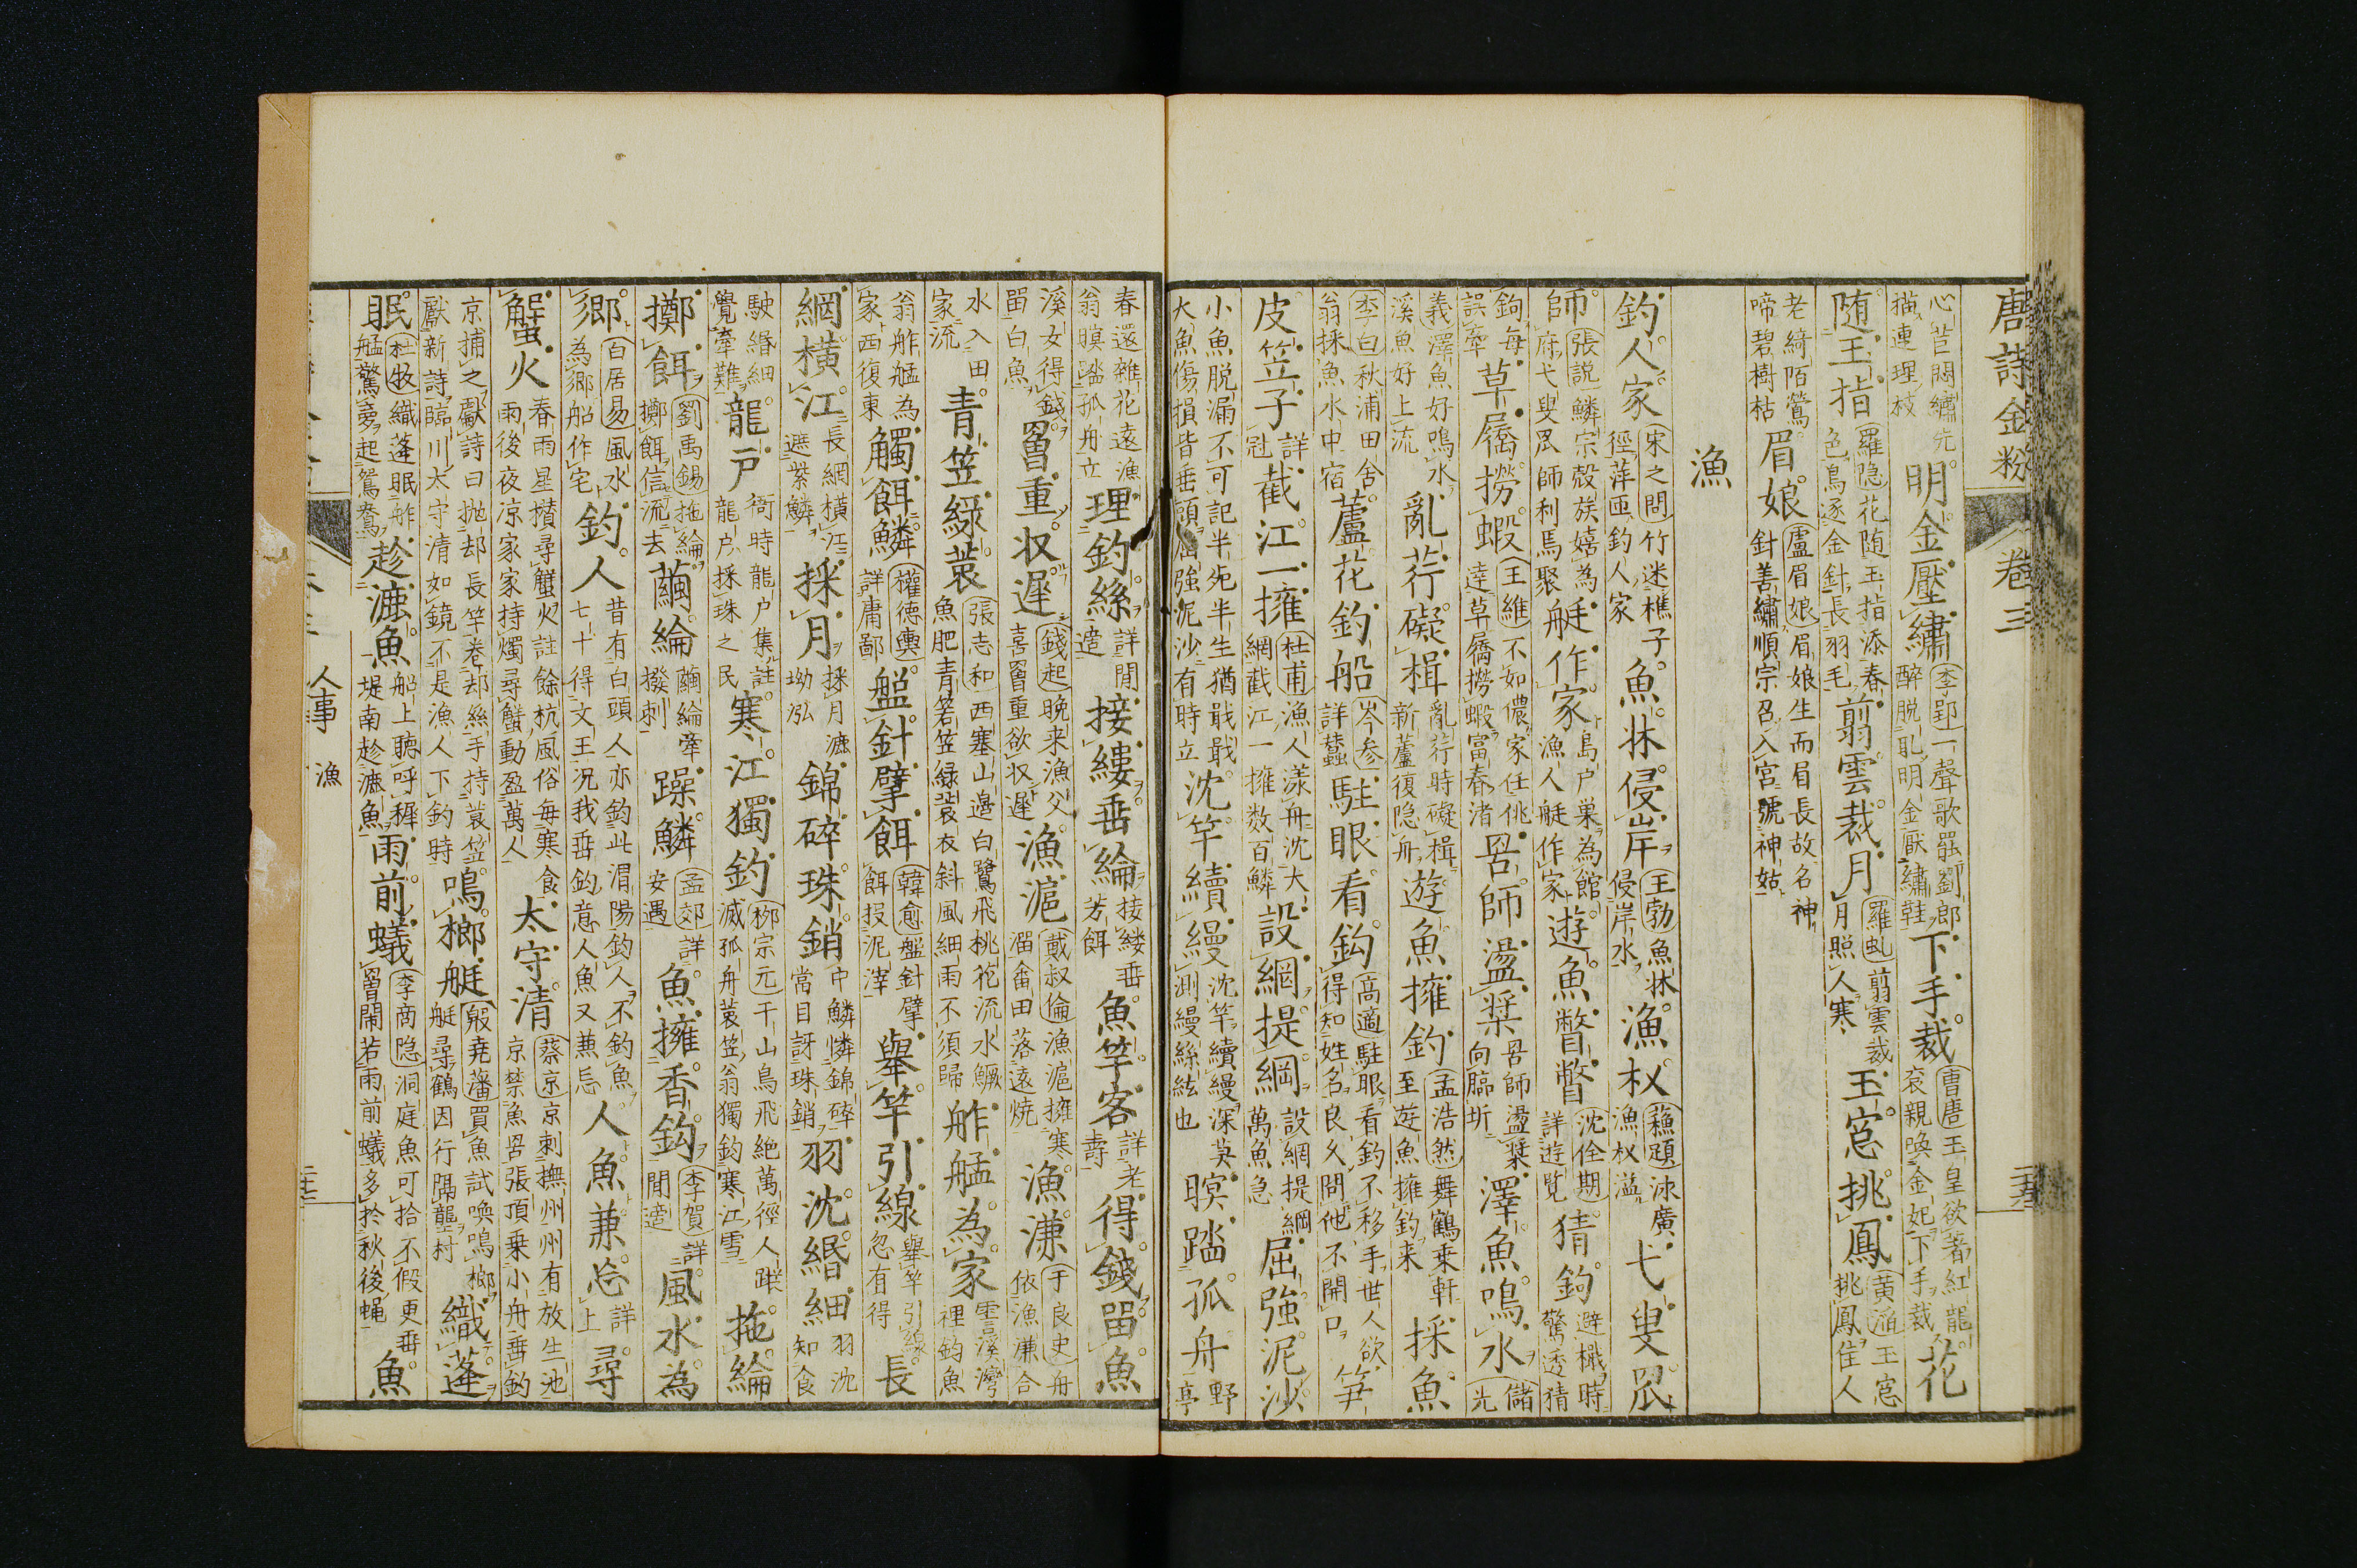 唐詩金粉 卷三
心芒悶繡先描連理枝 明金壓繡 李郢一聲歌罷劉郎醉脱恥明金厭繡鞋 下手裁 曹唐玉皇欲著紅龍袞親喚金妃下手裁 花
随玉指 羅隐花随玉指添春色鳥逐金針長羽毛 翦雲裁月 羅虬翦雲裁月照人寒 玉窓挑鳳 黄滔玉窓挑鳳佳人
老綺陌鶯啼碧樹枯 眉娘 盧眉娘眉娘生而眉長故名神針善繡順宗召入宮號神姑
漁
釣人家 宋之問竹迷樵子徑萍匝釣人家 魚牀侵岸 王勃魚牀侵岸水 漁杈 蘇頲廣漁杈溢 弋叟罛
師 張説鱗宗殼族嬉為府弋叟罛師利馬聚 艇作家 島户巢為館漁人艇作家 遊魚瞥瞥 沈佺期詳遊覧 猜鉤 避檝時驚透猜
鉤每誤牽 草屩撈蝦 王維不如儂家任佻達草屩撈蝦富春渚 罟師盪槳 罟師盪槳向臨圻 澤魚鳴水 儲光
義澤魚好鳴水溪魚好上流 亂荇礙楫 亂荇時礙楫新蘆復隐舟 遊魚擁釣 孟浩然舞鶴乗軒至遊魚擁釣来 採魚
李白秋浦田舍翁採魚水中宿 蘆花釣船 岑参詳蠶 駐眼看鈎 高適駐眼看釣不移手世人欲得知姓名良久問他不開口 笋
皮笠子 詳冠 截江一擁 杜甫漁人漾舟沈大網截江一擁数百鱗 設網提綱 設網提綱萬魚急 屈強泥沙
小魚脱漏不可記半死半生猶戢戢大魚傷損皆垂頭屈強泥沙有時立 沈竿續縵 沈竿續縵深莫測縵絲絃也 暝踏孤舟 野亭
春還雜花遠漁翁暝踏孤舟立 理釣絲 詳閒遣 接縷垂綸 接縷垂芳餌 魚竿客 詳老壽 得錢留魚
溪女得錢留白魚 罾重収遲 錢起晚来漁父喜罾重欲収遲 漁滬 戴叔倫漁滬擁寒溜畬田落遠燒 漁溓 于良史舟依漁溓合
水入田家流 青笠緑蓑 張志和西塞山邊白鷺飛桃花流水鱖魚肥青箬笠緑蓑衣斜風細雨不須歸 舴艋為家 霅溪灣裡釣魚
翁舴艋為家西復東 觸餌鱗 權德輿詳庸鄙 盤針擘餌 韓愈盤針擘餌投泥滓 舉竿引線 舉竿引線忽有得 長
網橫江 長網橫江遮紫鱗 採月 採月漉坳泓 錦碎珠銷 中鱗憐錦碎當目訝珠銷 羽沈緡細 羽沈知食
駛緡細覺牽難 龍戸 衙時龍户集註龍户採珠之民 寒江獨釣 柳宗元千山鳥飛絶萬徑人蹤滅孤舟蓑笠翁獨釣寒江雪 拖綸
擲餌 劉禹錫拖綸擲餌信流去 繭綸 繭綸牽撥刺 躁鱗 孟郊詳安遇 魚擁香鈎 李賀詳閒遣 風水為
鄉 白居易風水為鄉船作宅 釣人 昔有白頭人亦釣此渭陽釣人不釣魚七十得文王況我垂釣意人魚又蒹忘 人魚兼忘 詳上 尋
蟹火 春雨星攅尋蟹火註餘杭風俗每寒食雨後夜凉家家持燭尋蟹動盈萬人 太守清 蔡京京刺撫州州有放生池京禁魚罟張頂乗小舟垂釣
京捕之獻詩曰抛却長竿卷却絲手持蓑笠獻新詩臨川太守清如鏡不是漁人下釣時 鳴榔艇 殷堯藩買魚試喚鳴榔艇尋鶴因行隔壟村 織蓬
眠 杜牧織蓬眠舴艋驚夢起鴛鴦 趁漉魚 船上聽呼穉堤南趁漉魚 雨前蟻 李商隐洞庭魚可拾不假更垂罾閙若雨前蟻多於秋後蝿 魚
人事 漁